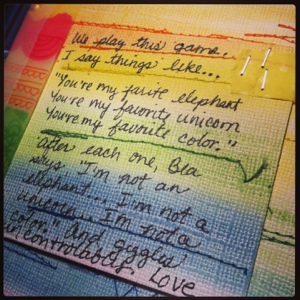 We play this game.
I say things like...
"You're my favrite elephant
You're my favority unicorn
You're my favorite color."
After each one, Bea
says "I'm not an
elephant... I'm not a
unicorn... I'm not a
color." And giggles
uncontrolably. Love